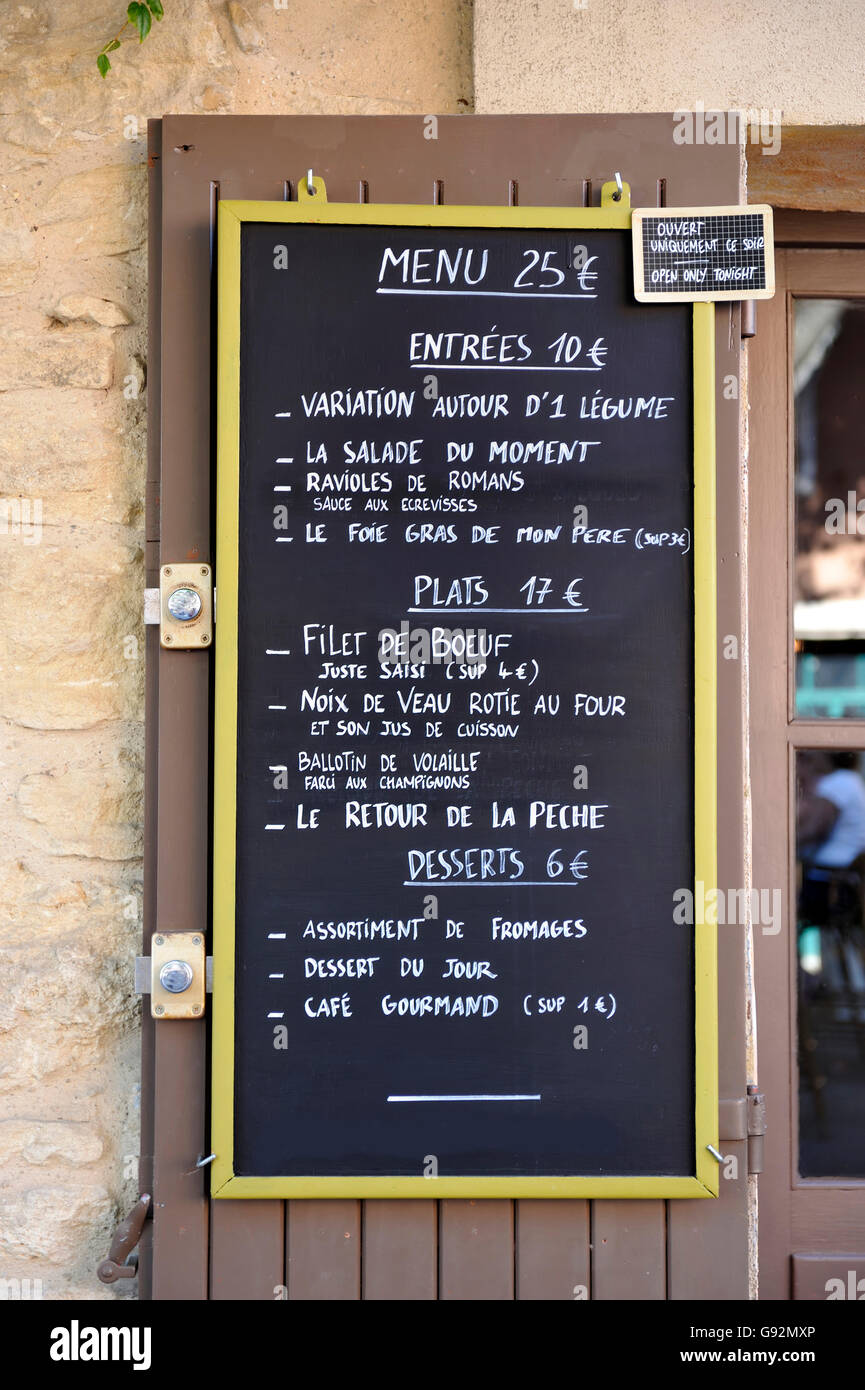 OUVERT
UNIQUEMENT CE SOIR
OPEN ONLY TONIGHT
MENU 25 €
ENTRÉES 10 €
- VARIATION AUTOUR D'1 LÉGUME
- LA SALADE DU MOMENT
- RAVIOLES DE ROMANS
SAUCE AUX ECREVISSES
- LE FOIE GRAS DE MON PERE (SUP 3€)
PLATS 17 €
- FILET DE BOEUF
JUSTE SAISI (SUP 4€)
- NOIX DE VEAU ROTIE AU FOUR
ET SON JUS DE CUISSON
- BALLOTIN DE VOLAILLE
FARCI AUX CHAMPIGNONS
- LE RETOUR DE LA PECHE
DESSERTS 6€
- ASSORTIMENT DE FROMAGES
- DESSERT DU JOUR
- CAFÉ GOURMAND (SUP 1 €)
alamy
Image ID: G92MXP
www.alamy.com